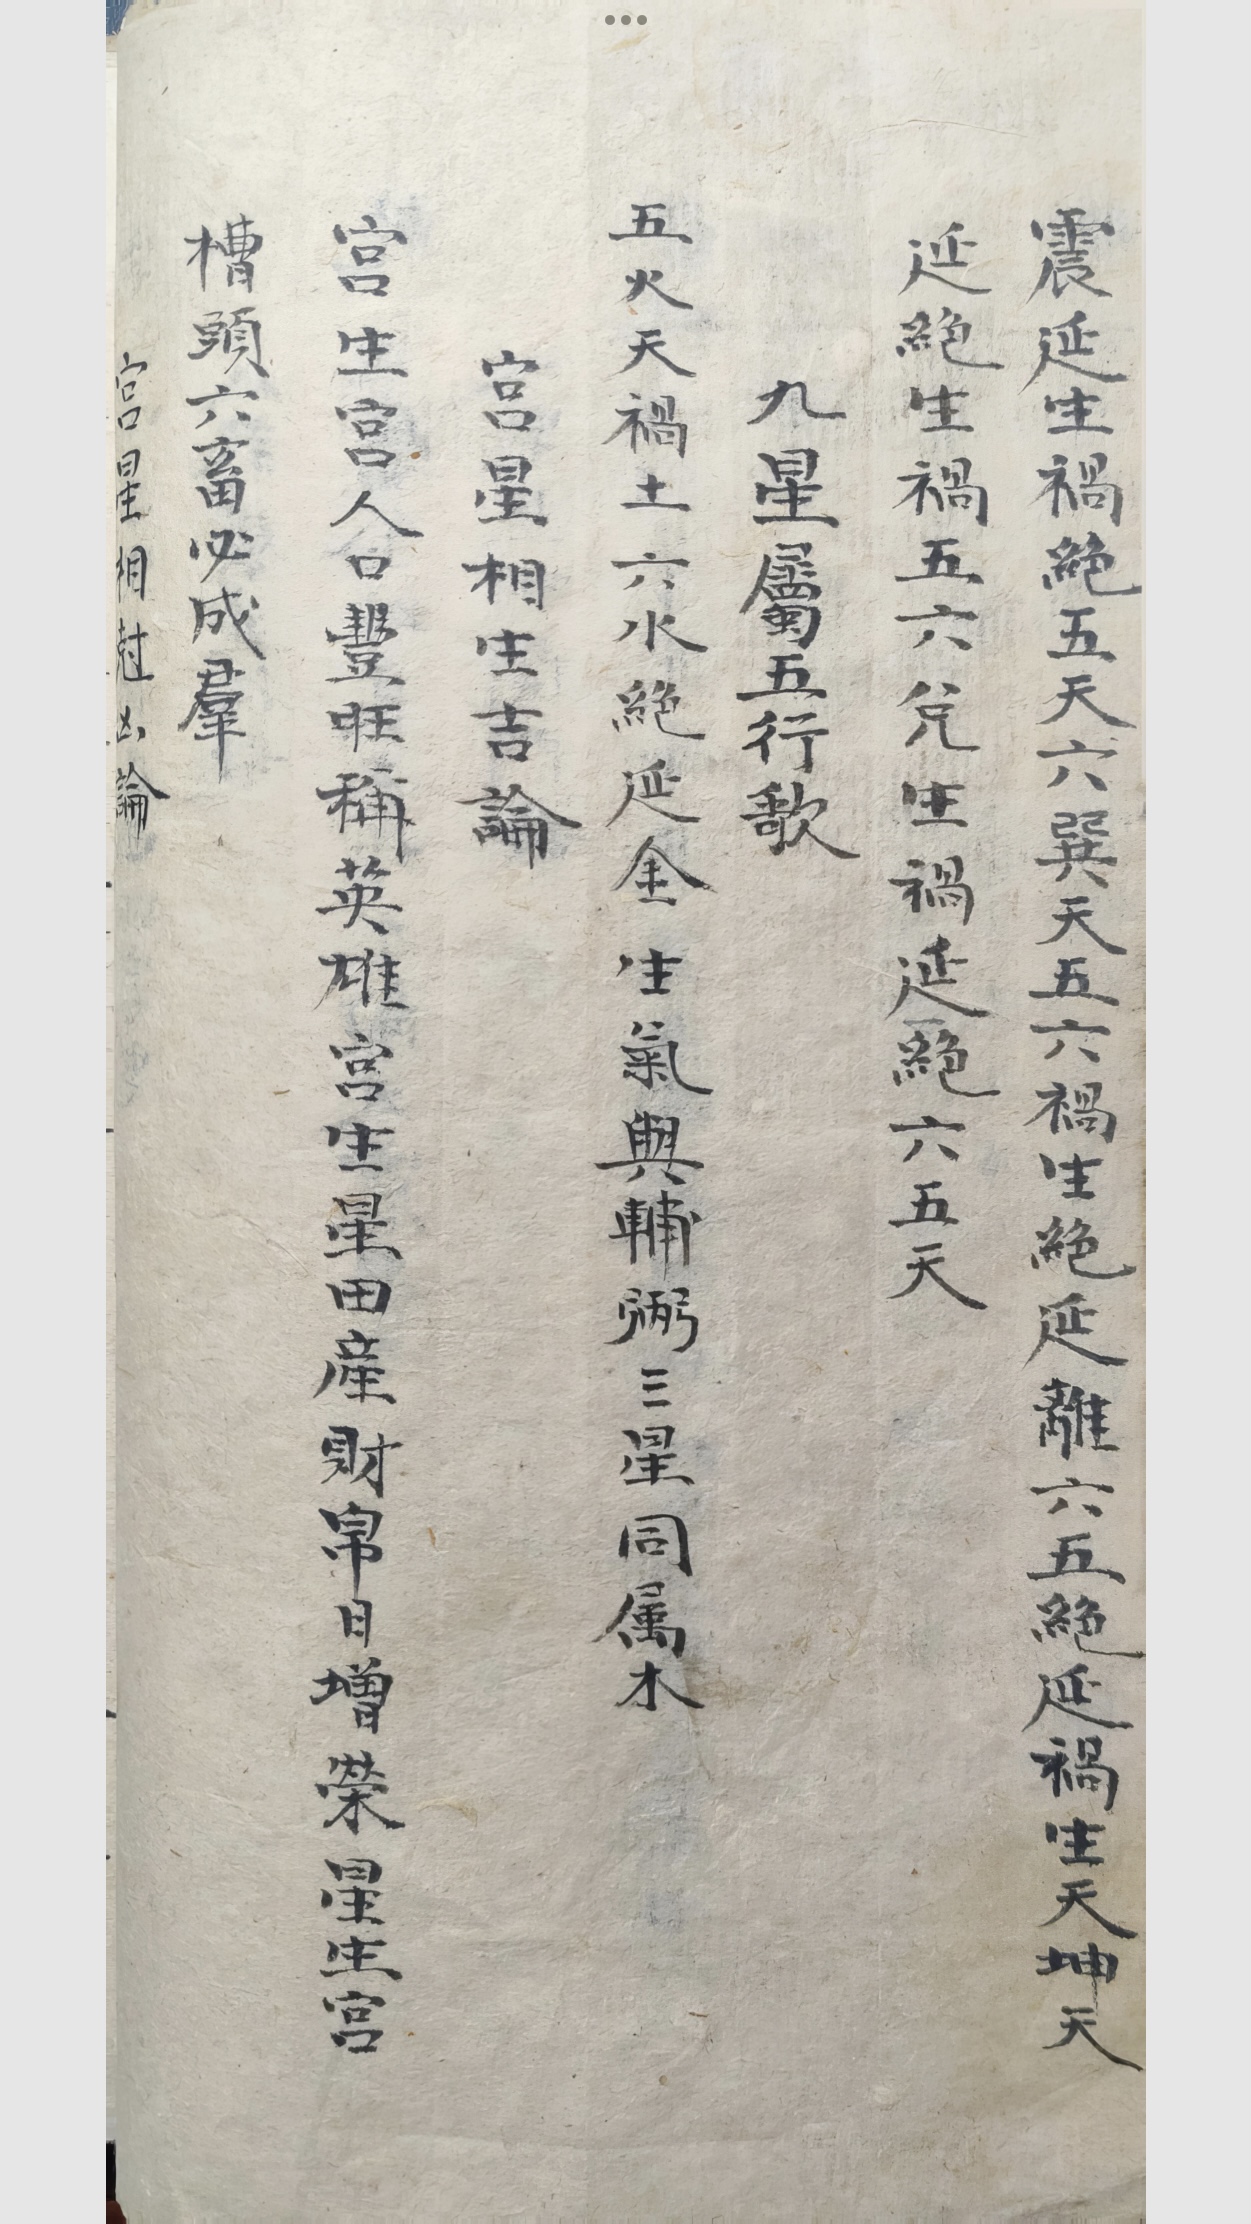 震延生禍絕五天六巽天五六禍生絕延離六五絕延禍生天坤天
延絕生禍五六兌生禍延絕六五天
九星屬五行歌
五火天禍土六水絕延金生氣與輔弼三星同属木
宮星相生吉論
宮生宮人口豐旺稱英雄宮生星田産財帛日增榮星生宮
槽頭六畜必成羣
宮星相尅凶論